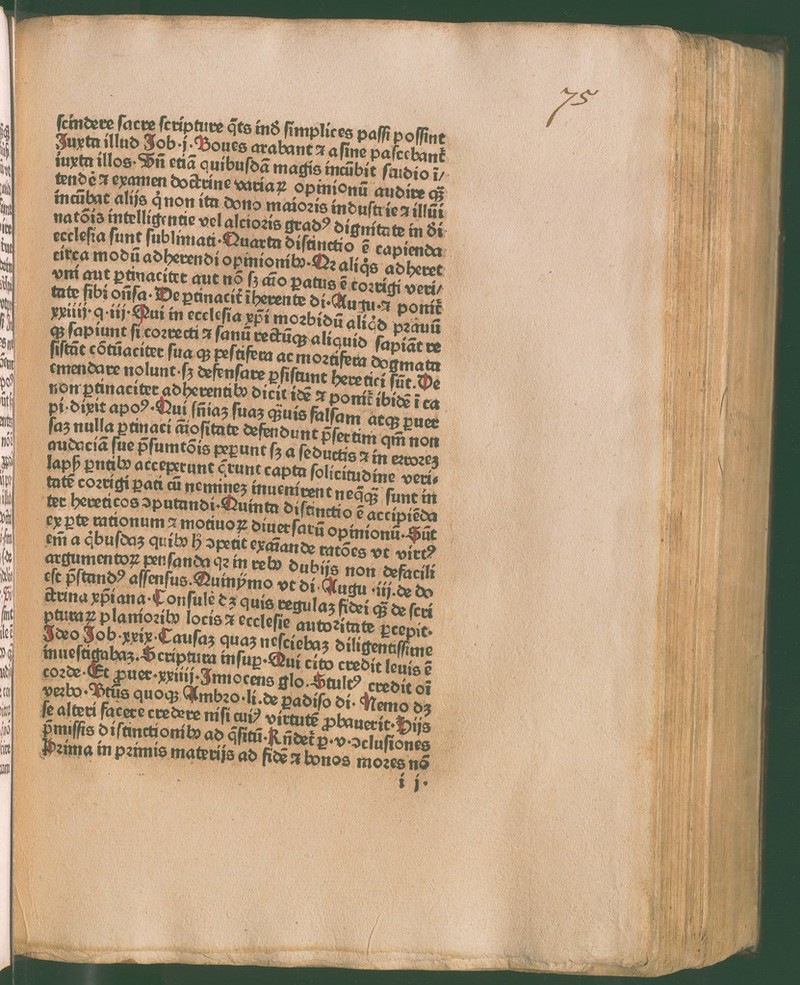 75
ſcindere ſacre ſcripture q̃ts inð ſimplices paſſi poſſint
Juxta illud Job·j·Boues arabant ⁊ aſine paſcebant̃
iuxta illos·Vñ etiã quibuſdã magis incũbit ſtudio ĩ/
tendẽ ⁊ examen doctrine variaꝝ opinionũ audire qꝫ̃
incũbat alijs q̇ non ita dono maioris induſtrie ⁊ illũi
natõis intelligentie vel altioris gradꝰ dignitate in ði
eccleſia ſunt ſublimati·Quarta diſtinctio ẽ capienda
circa modũ adherendi opinionibꝰ·Qꝛ aliq̇s adheret
vni aut ꝑtinaciter aut nõ ſꝫ aĩo ꝑatus ẽ corrigi veri/
tate ſibi oñſa·De ꝑtinacit̃ ĩherente di·Augu·⁊ ponit̃
xxiiij·q·iij·Qui in eccleſia xp̃i morbidũ aliq̇d prauũ
qꝫ ſapiunt ſi correcti ⁊ ſanũ rectũqꝫ aliquid ſapiãt re
ſiſtũt cõtũaciter ſua qꝫ peſtifera ac mortifera dogmata
emendare nolunt·ſꝫ defenſare ꝑſiſtunt heretici ſũt·De
non ꝑtinaciter adherentibꝰ dicit idẽ ⁊ ponit̃ ibidẽ ĩ ca
pi·dixit apoꝰ·Qui ſñiaꝫ ſuaꝫ qꝫ̃uis falſam atqꝫ ꝑuer
ſaꝫ nulla ꝑtinaci aĩoſitate defendunt p̃ſertim qm̃ non
audaciã ſue p̃ſumtõis peperunt ſꝫ a ſeductis ⁊ in erroreꝫ
lapſꝭ ꝑntibꝰ acceperunt q̃runt capta ſolicitudine veri⸗
tatẽ corrigi ꝑati cũ nemineꝫ inuenirent neqꝫ̃qꝫ̃ ſunt in
ter hereticos ꝯputandi·Quinta diſtinctio ẽ accipiẽda
ex ꝑte rationum ⁊ motiuoꝝ diuerſarũ opinionũ·Sũt
em̃ a q̇buſdaꝫ quibꝰ ꝯpetit exãi​ande ratões vt virtꝰ
argumentoꝝ penſanda qꝛ in rebꝰ dubijs non defacili
eſt p̃ſtandꝰ aſſenſus·Quinỹmo vt di·Augu·iij·de do
ctrina xp̃iana·Conſulẽ dꝫ quis regulaꝫ fidei qꝫ̃ de ſcri
pturaꝝ planioribꝰ locis ⁊ eccleſie autoritate ꝑcepit·
Ideo Job·xxix·Cauſaꝫ quaꝫ neſciebaꝫ diligentiſſime
inueſtigabaꝫ·Scriptura inſuꝑ·Qui cito credit leuis ẽ
corde·Et ꝓuer·xxiiij·Innocens glo·Stultꝰ credit oĩ
verbo·Btũs quoqꝫ Ambro·li·de ꝑadiſo di·Nemo dꝫ
ſe alteri facere credere niſi cuiꝰ virtutẽ ꝓbauerit·Hijs
p̃miſſis diſtinctionibꝰ ad q̃ſitũ·Rñdet̃ ꝑ·v·ꝯcluſiones
Prima in primis materijs ad fidẽ ⁊ bonos mores nõ
i j·